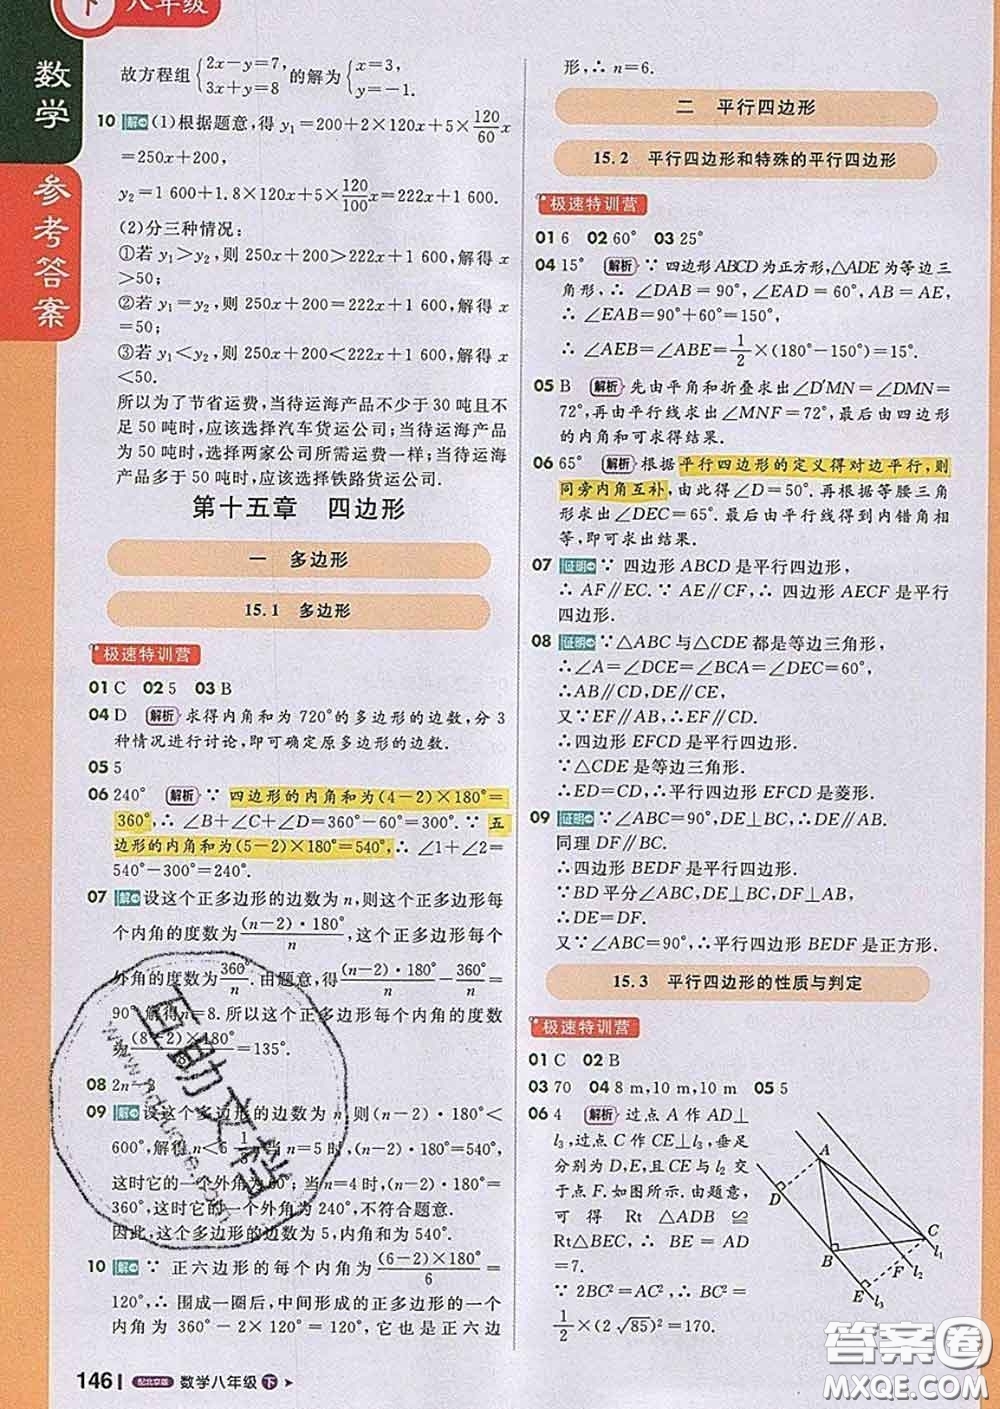 下 八年级
数学
参考答案
故方程组{2x-y=7, 3x+y=8 的解为{x=3, y=-1.
10 解 (1)根据题意,得 y₁=200+2×120x+5×120/60 x
=250x+200,
y₂=1 600+1.8×120x+5×120/100 x=222x+1 600.
(2)分三种情况:
①若 y₁>y₂,则 250x+200>222x+1 600,解得 x
>50;
②若 y₁=y₂,则 250x+200=222x+1 600,解得 x
=50;
③若 y₁<y₂,则 250x+200<222x+1 600,解得 x
<50.
所以为了节省运费,当待运海产品不少于 30 吨且不
足 50 吨时,应该选择汽车货运公司;当待运海产品
为 50 吨时,选择两家公司所需运费一样;当待运海
产品多于 50 吨时,应该选择铁路货运公司.
第十五章 四边形
一 多边形
15.1 多边形
极速特训营
01 C 02 5 03 B
04 D 解析 求得内角和为 720°的多边形的边数,分 3
种情况进行讨论,即可确定原多边形的边数.
05 5
06 240° 解析 ∵ 四边形的内角和为(4-2)×180°=
360°,∴ ∠B+∠C+∠D=360°-60°=300°.∵ 五
边形的内角和为(5-2)×180°=540°,∴ ∠1+∠2=
540°-300°=240°.
07 解 设这个正多边形的边数为 n,则这个正多边形每
个内角的度数为(n-2)·180°/n,这个正多边形每个
外角的度数为360°/n.由题意,得(n-2)·180°/n-360°/n=
90°,解得 n=8.所以这个正多边形每个内角的度数
为(8-2)×180°/8=135°.
08 2n-3
09 解 设这个多边形的边数为 n,则(n-2)·180°<
600°,解得 n<5 1/3.当 n=5 时,(n-2)·180°=540°,
这时它的一个外角为60°;当 n=4 时,(n-2)·180°=
360°,这时它的一个外角为 240°,不符合题意.
因此,这个多边形的边数为 5,内角和为 540°.
10 解 ∵ 正六边形的每个内角为(6-2)×180°/6=
120°,∴ 围成一圈后,中间形成的正多边形的一个
内角为 360°-2×120°=120°,它也是正六边
形,∴ n=6.
二 平行四边形
15.2 平行四边形和特殊的平行四边形
极速特训营
01 6 02 60° 03 25°
04 15° 解析 ∵ 四边形ABCD为正方形,△ADE为等边三
角形,∴ ∠DAB=90°,∠EAD=60°,AB=AE,
∴ ∠EAB=90°+60°=150°,
∴ ∠AEB=∠ABE=1/2×(180°-150°)=15°.
05 B 解析 先由平角和折叠求出∠D′MN=∠DMN=
72°,再由平行线求出∠MNF=72°,最后由四边形
的内角和可求得结果.
06 65° 解析 根据平行四边形的定义得对边平行,则
同旁内角互补,由此得∠D=50°.再根据等腰三角
形求出∠DEC=65°.最后由平行线得到内错角相
等,即可求出结果.
07 证明 ∵ 四边形 ABCD 是平行四边形,
∴ AF∥EC.∵ AE∥CF,∴ 四边形 AECF 是平行
四边形.
08 证明 ∵△ABC 与△CDE 都是等边三角形,
∴∠A=∠DCE=∠BCA=∠DEC=60°,
∴AB∥CD,DE∥CE,
又∵EF∥AB,∴EF∥CD.
∴四边形 EFCD 是平行四边形.
∵△CDE 是等边三角形.
∴ED=CD,∴平行四边形 EFCD 是菱形.
09 证明 ∵∠ABC=90°,DE⊥BC,∴DE∥AB.
同理 DF∥BC.
∴四边形 BEDF 是平行四边形.
∵BD 平分∠ABC,DE⊥BC,DF⊥AB,
∴DE=DF.
又∵∠ABC=90°,∴平行四边形 BEDF 是正方形.
15.3 平行四边形的性质与判定
极速特训营
01 C 02 B
03 70 04 8 m,10 m,10 m 05 5
06 4 解析 过点 A 作 AD⊥
l₃,过点 C 作 CE⊥l₃,垂足
分别为 D,E,且 CE 与 l₂ 交
于点 F.如图所示.由题意,
可得 Rt △ADB ≌
Rt△BEC,∴ BE = AD
=7.
∵ 2BC²=AC²,∴ BC²=
1/2×(2√85)²=170.
A
D
B
C
F
E
l₁
l₂
l₃
互助文档
146 配北京版 数学八年级 下
答案圈
MXQE.COM